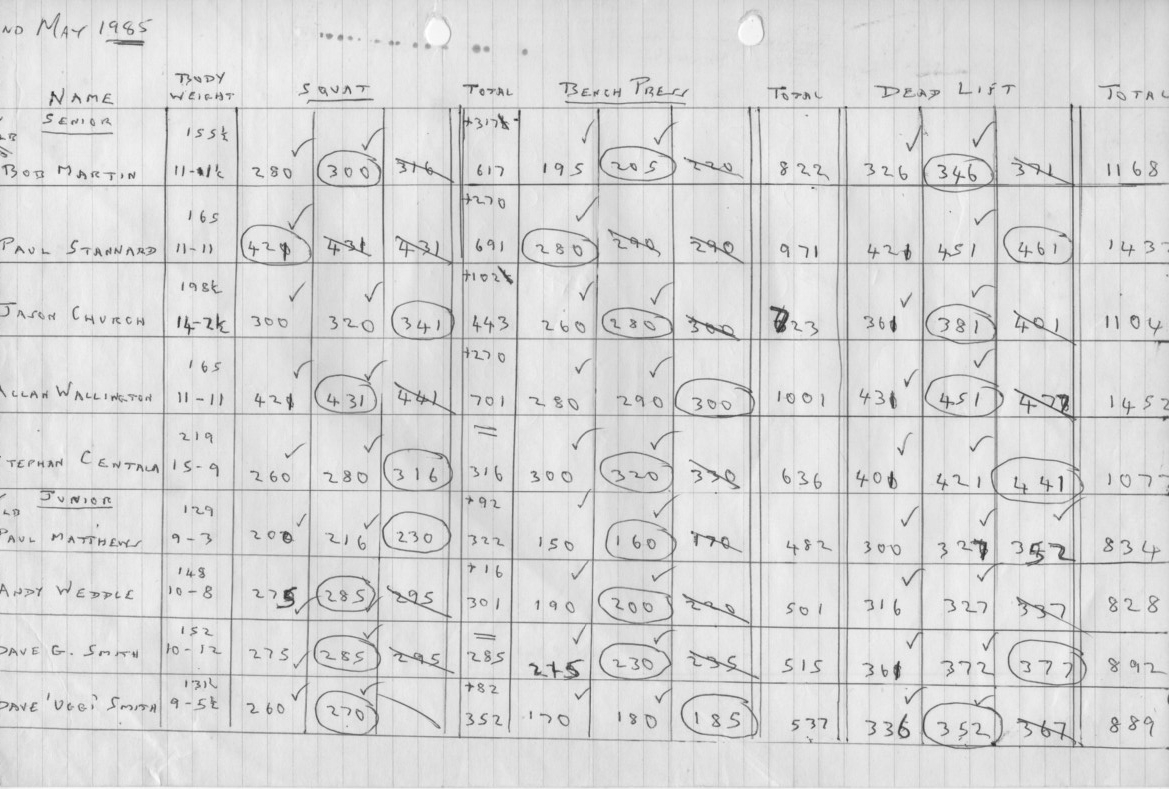 ND MAY 1985
NAME BODY WEIGHT SQUAT TOTAL BENCH PRESS TOTAL DEAD LIFT TOTAL
SENIOR 155½ +317½
BOB MARTIN 11-1½ 280 300 316 617 195 205 220 822 326 346 371 1168
165 +270
PAUL STANNARD 11-11 421 431 431 691 280 290 290 971 421 451 461 143
198½ +102
JASON CHURCH 14-2½ 300 320 341 443 260 280 300 723 361 381 401 1104
165 +270
ALLAN WALLINGTON 11-11 421 431 441 701 280 290 300 1001 431 451 477 1452
219 =
TEPHAN CENTALA 15-9 260 280 316 316 300 320 330 636 401 421 441 1077
JUNIOR 129 +92
PAUL MATTHEWS 9-3 200 216 230 322 150 160 170 482 300 327 352 834
148 +16
ANDY WEDDLE 10-8 275 285 295 301 190 200 220 501 316 327 337 828
152 =
DAVE G. SMITH 10-12 275 285 295 285 215 230 235 515 361 372 377 892
131½ +82
DAVE 'UGGI' SMITH 9-5½ 260 270 352 170 180 185 537 336 352 367 889